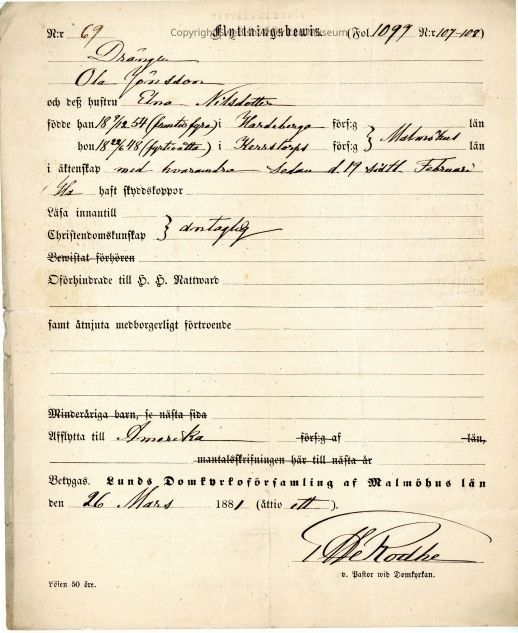 N:r 69 Flyttningsbewis. (Fol. 1099 N:r 107-108)
Drängen
Ola Jönsson
och deß hustru Elna Nilsdotter
födde han 18 7/12 54 (femtiofyra) i Hardeberga förs:g } Malmöhus län
hon 18 48 (fyrtioåtta) i Kerrstorps förs:g län
i äktenskap med hvarandra sedan d. 19 sistl. Februari
Ha haft skyddskoppor
Läsa innantill
Christendomskunskap } antaglig
Bewistat förhören
Oförhindrade till H. H. Nattward
samt åtnjuta medborgerligt förtroende
Minderåriga barn, se nästa sida
Afflytta till Amerika förs:g af län,
mantalsskrifningen här till nästa år
Betygas. Lunds Domkyrkoförsamling af Malmöhus län
den 26 Mars 1881 (åttio ett).
Rodhe
v. Pastor wid Domkyrkan.
Lösen 50 öre.